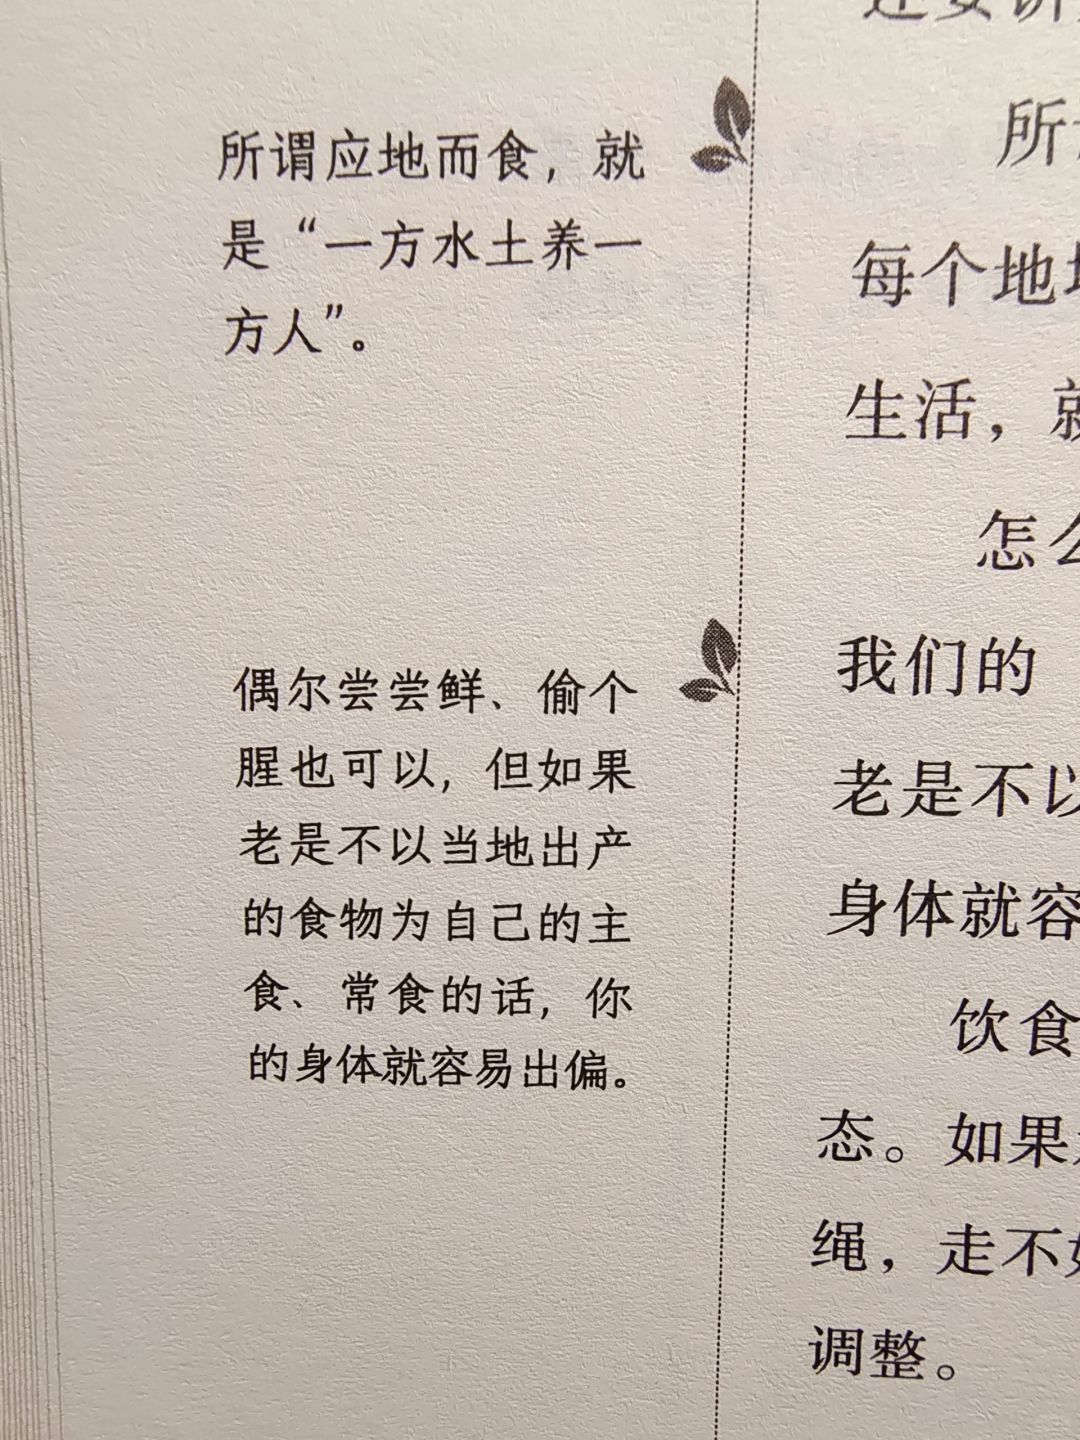 所谓应地而食，就
是“一方水土养一
方人”。
偶尔尝尝鲜、偷个
腥也可以，但如果
老是不以当地出产
的食物为自己的主
食、常食的话，你
的身体就容易出偏。
还要讲
所
每个地
生活，就
怎么
我们的
老是不以
身体就容
饮食
态。如果
绳，走不好
调整。